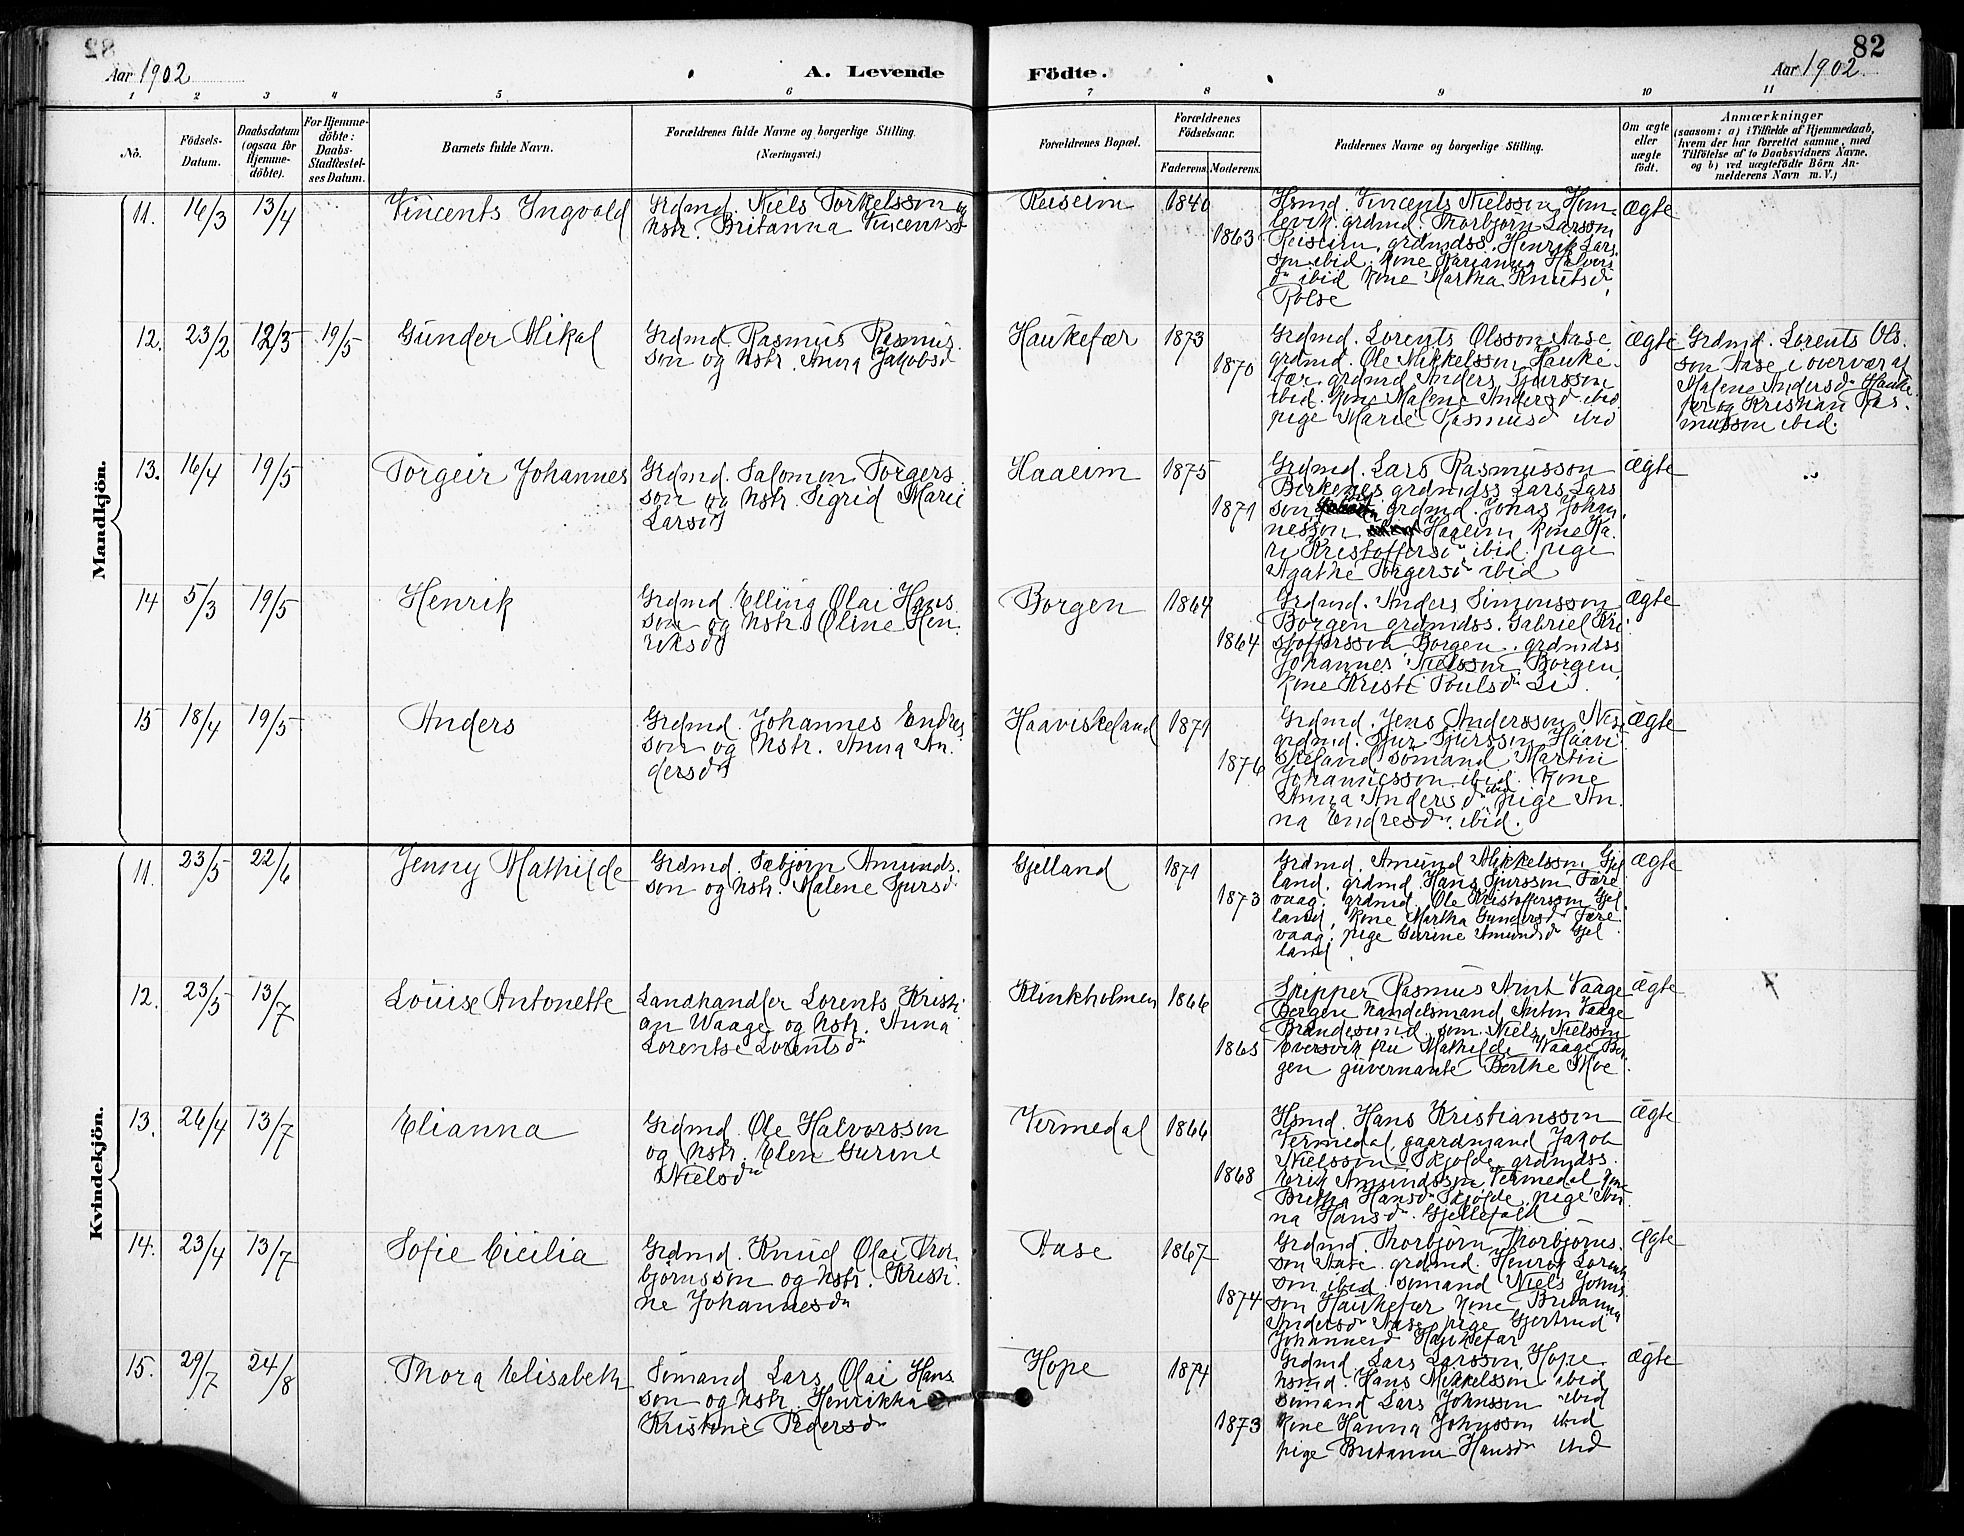 82
Aar 1902
A. Levende Födte.
Aar 1902
1 2 3 4 5 6 7 8 9 10 11
No.
Födsels-Datum.
Daabsdatum (ogsaa for Hjemme-döbte).
For Hjemme-döbte: Daabs-Stadfæstel-ses Datum.
Barnets fulde Navn.
Forældrenes fulde Navne og borgerlige Stilling.
(Næringsvei.)
Forældrenes Bopæl.
Forældrenes Födselsaar.
Faderens. Moderens.
Faddernes Navne og borgerlige Stilling.
Om ægte eller uægte födt.
Anmærkninger
(saasom: a) i Tilfælde af Hjemmedaab,
hvem der har forrettet samme, med
Tilföielse af to Daabsvidners Navne,
og b) ved uægtefödte Börn An-
melderens Navn m. V.)
Mandkjön.
11. 16/3 13/4 Vincents Ingvald
Grdmd. Niels Torkelsson og
hstr. Britanna Vincentsd
Reiseim 1840 1863
Hsmd. Vincents Nielsson Hom-
levik. grdmd. Thorbjörn Larsson
Reiseim, grdmdss. Henrik Lars
son ibid. kone Karianna Halvors
dr ibid kone Martha Knutsdr
Rolse
ægte
12. 23/2 12/3 19/5 Gunder Mikal
Grdmd. Rasmus Rasmus
son og hstr. Anna Jakobsd
Haukefær 1873 1870
Grdmd. Lorents Olsson Aase
grdmd. Ole Mikkelsson Hauke-
fær. grdmd Anders Sjursson
ibid. kone Malene Andersd ibid
pige Marie Rasmusd ibid
ægte
Grdmd. Lorents Ols-
son Aase i overvær af
Malene Andersdr Hauke
fær og Kristian Ras-
musson ibid.
13. 16/4 19/5 Torgeir Johannes
Grdmd. Salomon Torgers
son og hstr. Sigrid Marie
Larsdr
Haaeim 1875 1871
Grdmd. Lars Rasmusson
Birkenes grdmdss Lars Lars
son ibid grdmd. Jonas Johan-
nesson Haaeim kone Ka-
ri Kristoffersdr ibid. pige
Agathe Torgersdr ibid
ægte
14 5/3 19/5 Henrik
Grdmd. Elling Olai Hans
son og hstr. Oline Hen-
riksdr
Borgen 1864 1864
Grdmd. Anders Simonsson
Borgen grdmdss. Gabriel Kri
stoffersson Borgen. grdmdss
Johannes Nielsson Borgen,
kone Kristi Poulsdr Li.
ægte
15 18/4 19/5 Anders
Grdmd. Johannes Endres
son og hstr. Anna An-
dersdr
Haaviskeland 1871 1876
Grdmd. Jens Andersson
grdmd. Sjur Sjursson Haavi
skeland sömand Martin
Johannesson ibid. kone
Anna Andersdr ibid pige An-
na Endresdr ibid.
ægte
Kvindekjön.
11. 23/5 22/6 Jenny Mathilde
Grdmd. Sæbjörn Amunds-
son og hstr. Malene Sjursd
Gjelland 1871 1873
Grdmd. Amund Mikkelsson Gjel
land, grdmd Hans Sjursson Fære
vaag, grdmd. Ole Kristoffersson Gjel
land, kone Martha Gundersdr Fære
vaag, pige Gurine Amundsdr Gjel
land.
ægte
12. 23/5 13/7 Louise Antonette
Landhandler Lorents Kristi
an Waage og hstr. Anna
Lorentse Lorentsdr
Klinkholmen 1866 1865
Skipper Rasmus Arnt Vaage
Bergen handelsmand Anton Vaage
Brandesund, söm. Niels Nielsson
Eversvik fru Mathilde Waage Ber-
gen guvernante Berthe Moe
ægte
13. 26/4 13/7 Elianna
Grdmd. Ole Halvorsson
og hstr. Elen Gurine
Nielsdr
Vermedal 1866 1868
Hsmd. Hans Kristiansson
Vermedal, gaardmand Jakob
Nielsson Skjolde, grdmdss.
Erik Amundsson Vermedal
Britha Hansdr Skjolde, pige An
na Hansdr Gjellefald
ægte
14. 23/4 13/7 Sofie Cicilia
Grdmd. Knud Olai Thor-
björnsson og hstr. Kristi-
ne Johannesdr
Aase 1867 1874
Grdmd. Thorbjörn Thorbjörns-
son Aase. grdmd. Henrik Lorents
son ibid. sömand Niels Johns
son Haukefær kone Britanna
Andersdr Aase, pige Gjertrud
Johannesd Haukefær
ægte
15. 29/7 24/8 Thora Elisabeth
Sömand Lars Olai Hans
son og hstr. Henrikka
Kristine Pedersdr
Hope 1874 1873
Grdmd. Lars Larsson Hope.
hsmd. Hans Mikkelsson ibid
sömand Lars Johnsson ibid
kone Hanna Johnsson ibid
pige Britanna Hansdr ibid
ægte